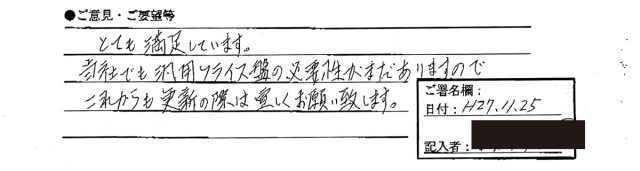 ●ご意見・ご要望等
とても満足しています。
当社でも汎用フライス盤の必要性がまだありますので
これからも更新の際は宜しくお願い致します。
ご署名欄：
日付：H27.11.25
記入者：